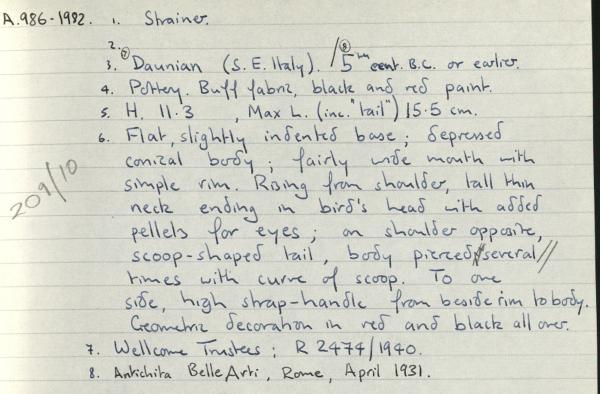 A.986-1982. 1. Strainer.
2.
3. ⑦ Daunian (S.E. Italy). /⑧ 5th cent. B.C. or earlier.
4. Pottery. Buff fabric, black and red paint.
5. H. 11.3 , Max L. (inc. "tail") 15.5 cm.
6. Flat, slightly indented base; depressed
conical body; fairly wide mouth with
simple rim. Rising from shoulder, tall thin
neck ending in bird's head with added
pellets for eyes; on shoulder opposite,
scoop-shaped tail, body pierced several //
times with curve of scoop. To one
side, high strap-handle from beside rim to body.
Geometric decoration in red and black all over.
7. Wellcome Trustees; R 2474/1940.
8. Antichita Belle Arti, Rome, April 1931.
209/10